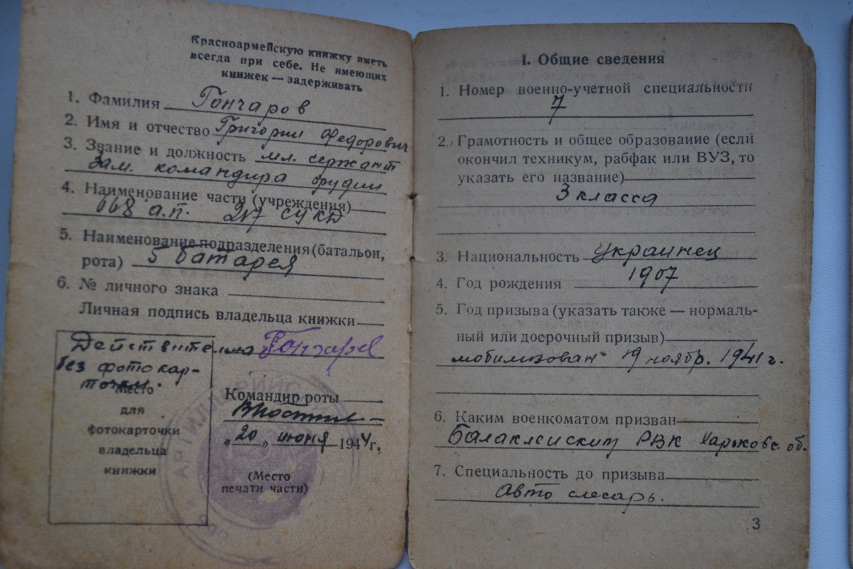 Красноармейскую книжку иметь
всегда при себе. Не имеющих
книжек — задерживать
1. Фамилия Гончаров
2. Имя и отчество Григорий Федорович
3. Звание и должность мл. сержант
Зам. командира орудия
4. Наименование части (учреждения)
668 а.п. 217 СУКД
5. Наименование подразделения (батальон,
рота) 5 батарея
6. № личного знака
Личная подпись владельца книжки
Действительна Гончаров
без фотокар-
точки.
Место
для
фотокарточки
владельца
книжки
Командир роты
„20„ июня 1944 г.
(Место
печати части)
I. Общие сведения
1. Номер военно-учетной специальности
7
2. Грамотность и общее образование (если
окончил техникум, рабфак или ВУЗ, то
указать его название)
3 класса
3. Национальность Украинец
4. Год рождения 1907
5. Год призыва (указать также — нормаль-
ный или досрочный призыв)
мобилизован 19 ноябр. 1941 г.
6. Каким военкоматом призван
Балаклейским РВК Харьковс. об.
7. Специальность до призыва
авто слесарь.
3